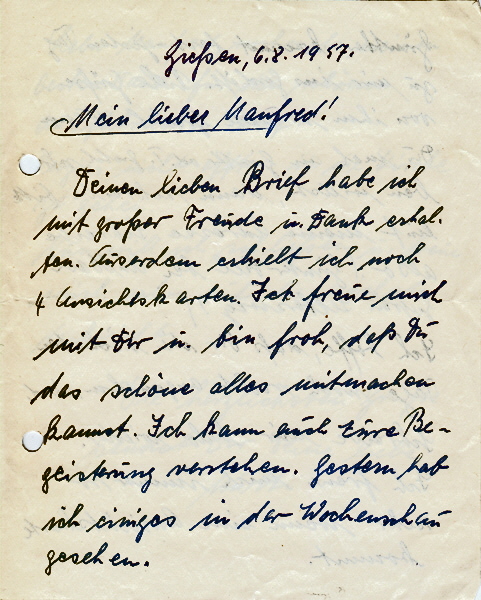 Gießen, 6.8.1957.
Mein lieber Manfred!
Deinen lieben Brief habe ich
mit großer Freude u. Dank erhal-
ten. Auserdem erhielt ich noch
4 Ansichtskarten. Ich freue mich
mit Dir u. bin froh, daß Du
das schöne alles mitmachen
kannst. Ich kann auch Eure Be-
geisterung verstehen. Gestern hab
ich einiges in der Wochenschau
gesehen.